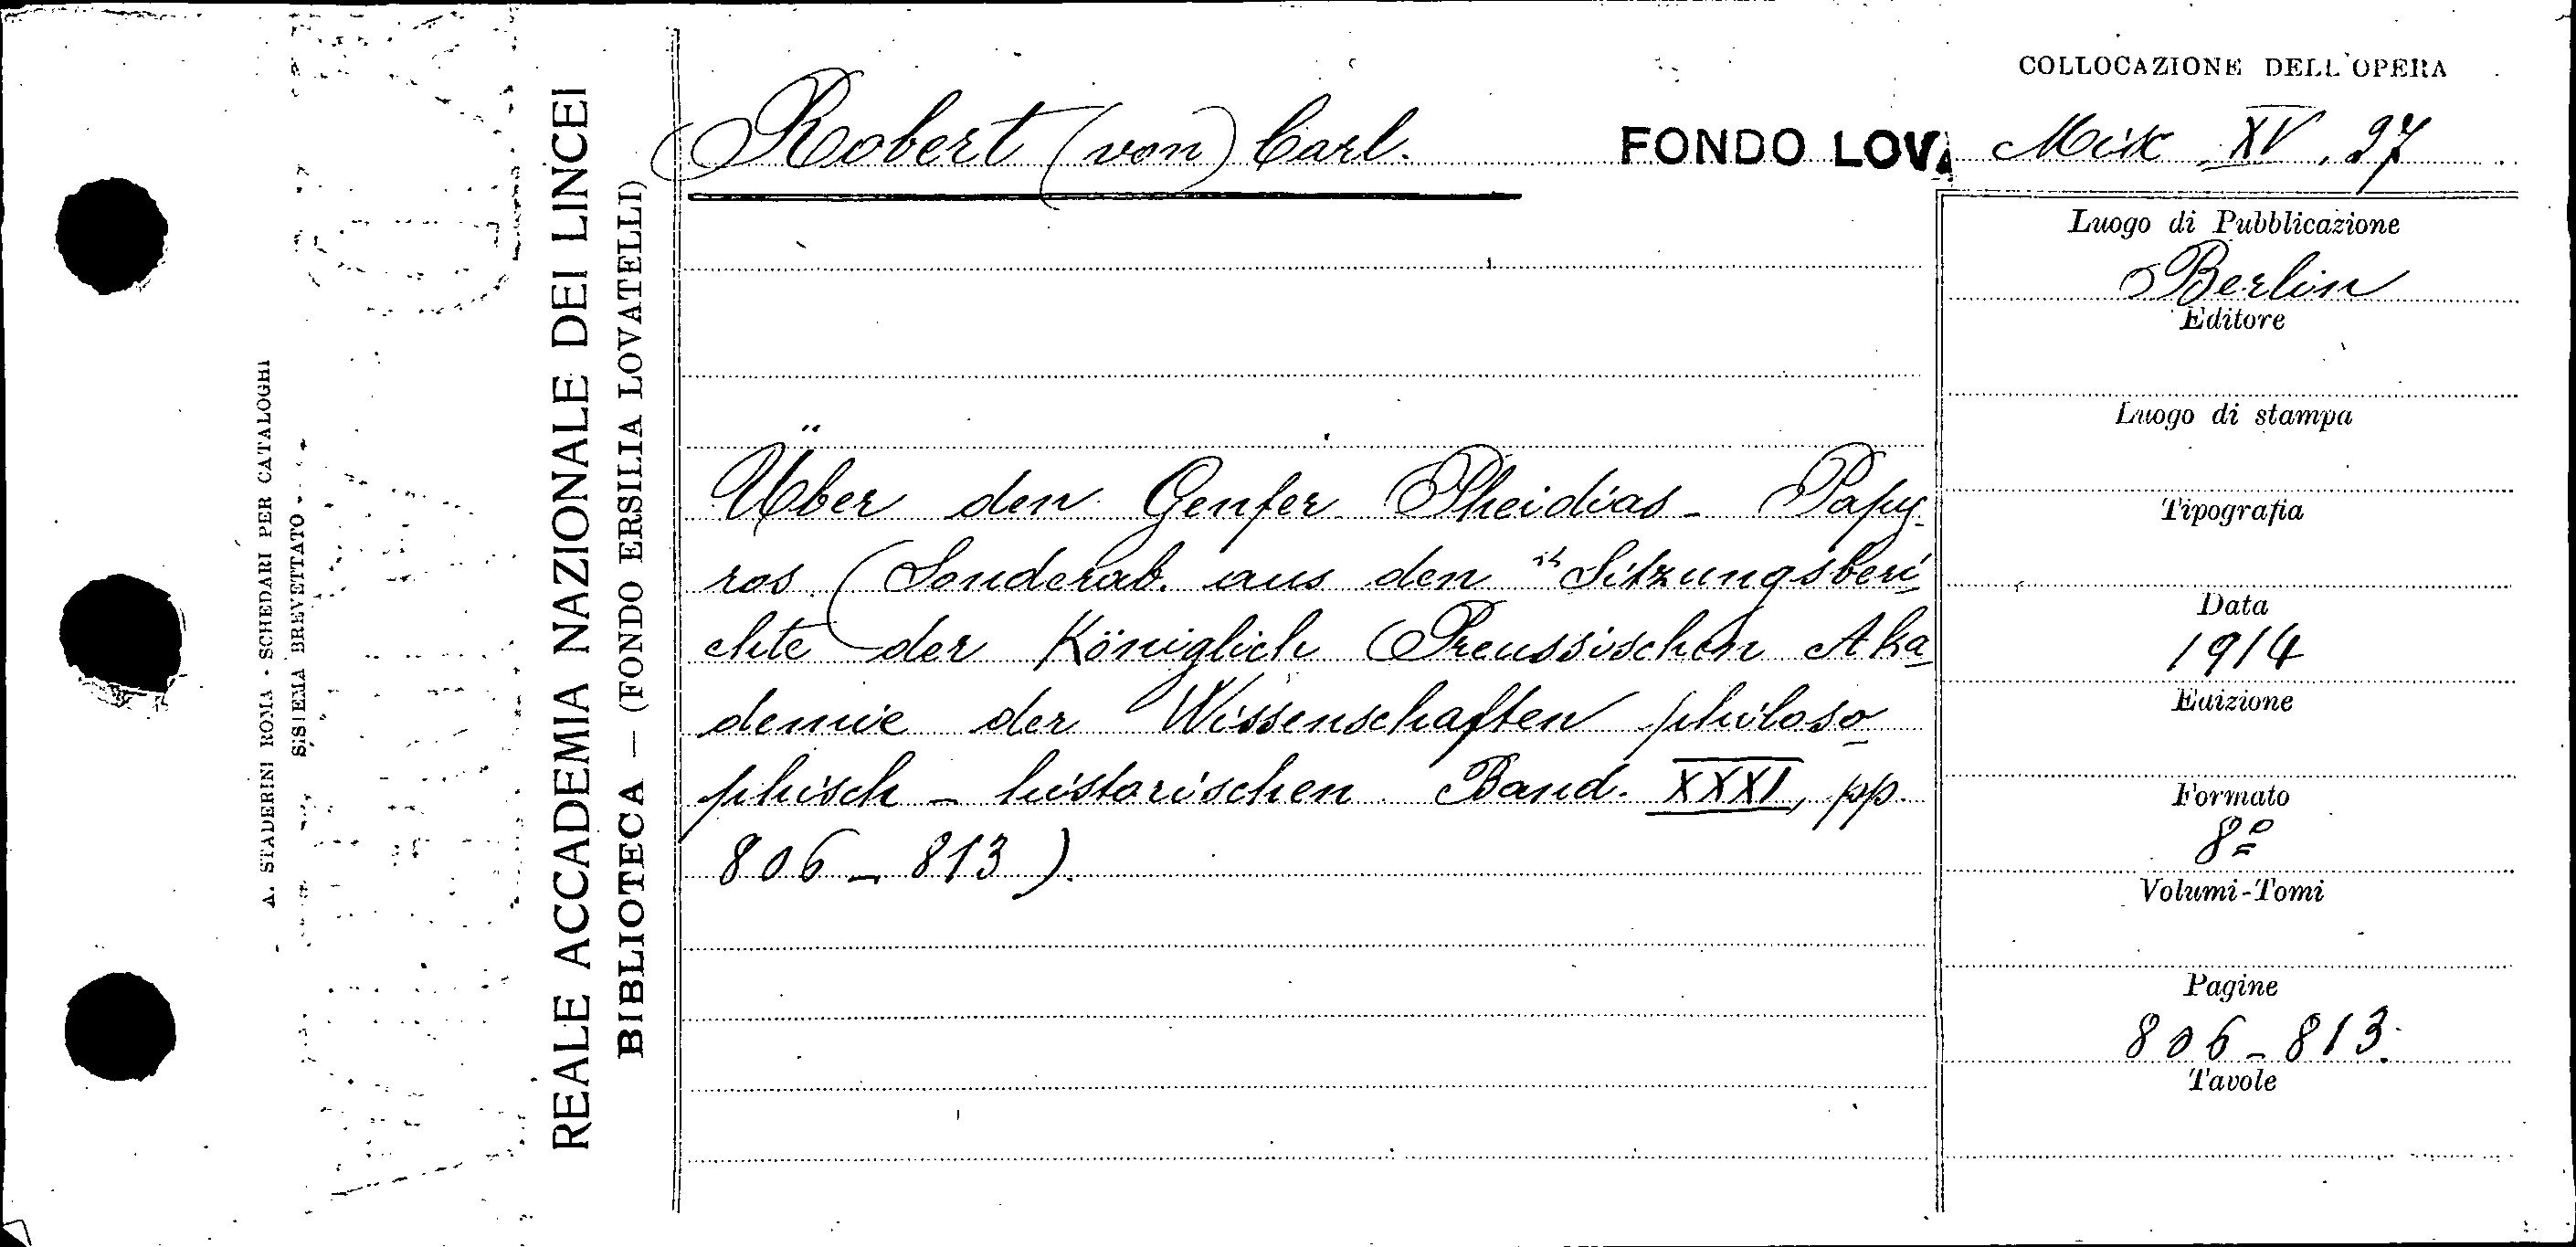 COLLOCAZIONE DELL'OPERA
Robert (von) Carl.
FONDO LOVA
XV. 27
Über den Genfer Pheidias - Papy-
ros (Sonderab. aus den "Sitzungsberi-
chte der Königlich Preussischen Aka-
demie der Wissenschaften philoso-
phisch - historischen Band. XXXI, pp.
806 - 813).
Luogo di Pubblicazione
Berlin
Editore
Luogo di stampa
Tipografia
Data
1914
Edizione
Formato
8º
Volumi-Tomi
Pagine
806-813.
Tavole
REALE ACCADEMIA NAZIONALE DEI LINCEI
BIBLIOTECA — (FONDO ERSILIA LOVATELLI)
A. STADERINI ROMA - SCHEDARI PER CATALOGHI
SISTEMA BREVETTATO